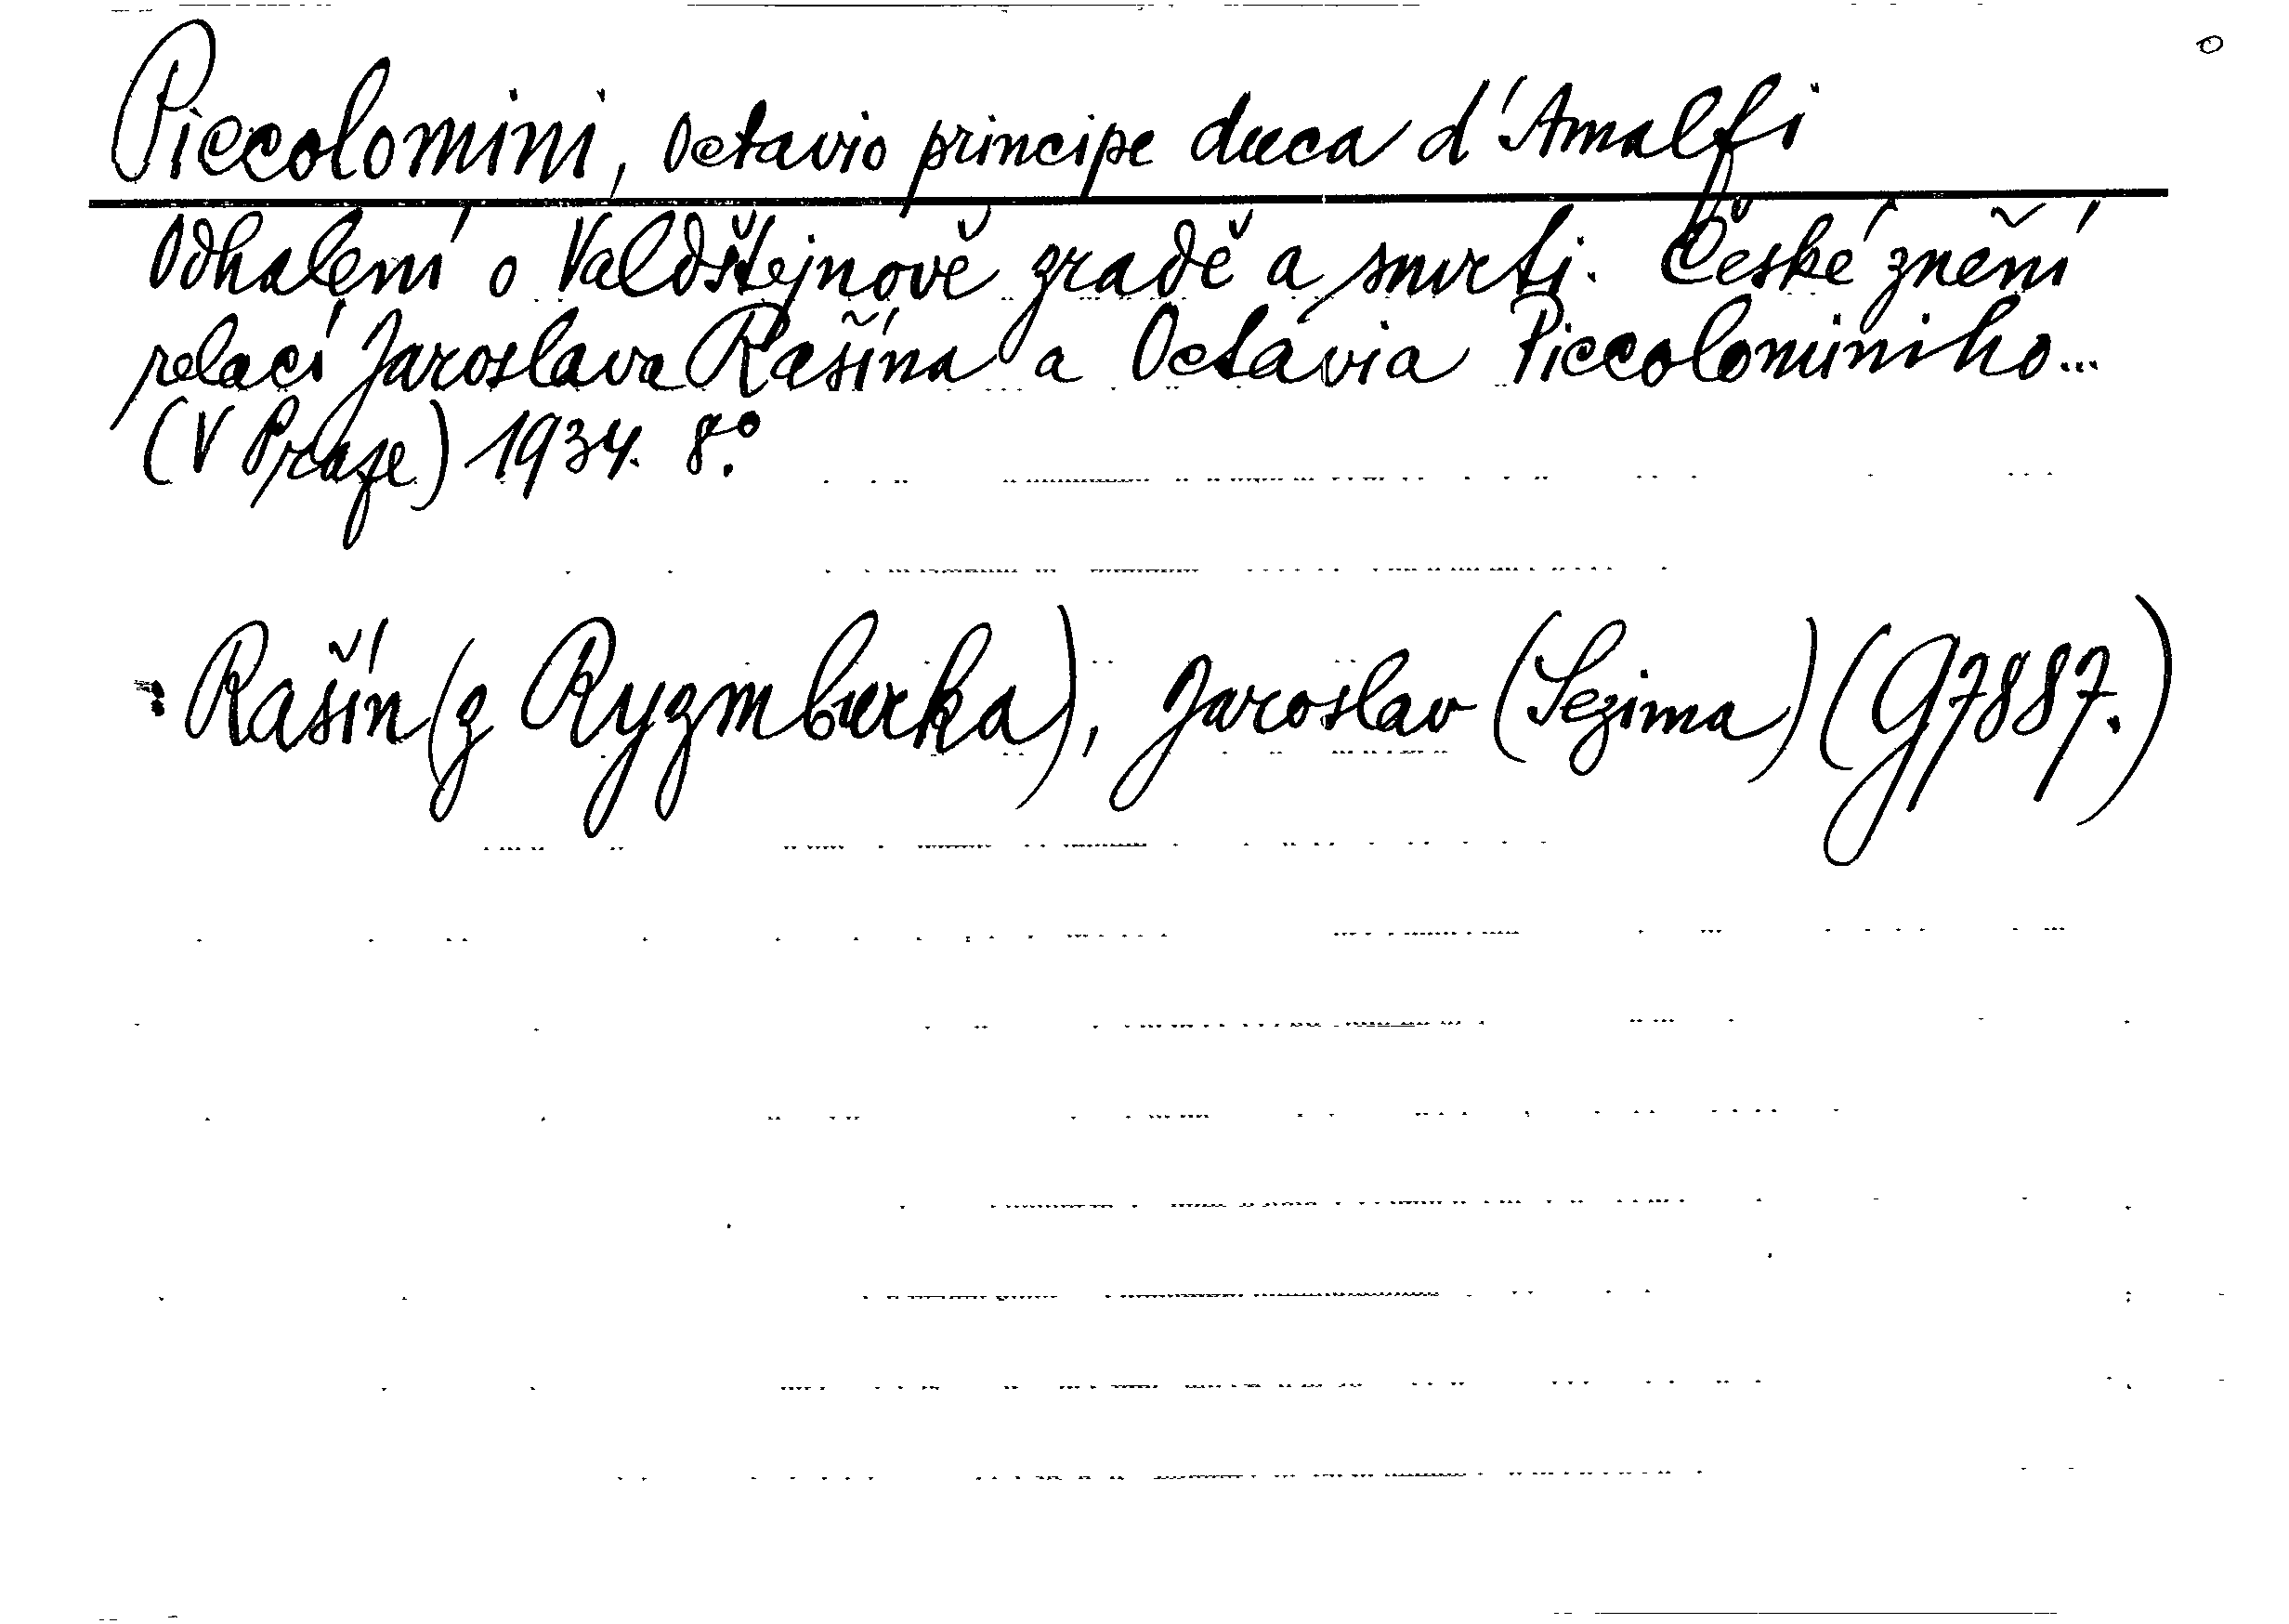 Piccolomini, Octavio principe duca d'Amalfi
Odhalení o Valdštejnově zradě a smrti. České znění
relací Jaroslava Rašína a Octavia Piccolominiho...
(V Praze) 1934. 8°.
Rašín (z Ryzmburka), Jaroslav (Sezima) (G7887.)